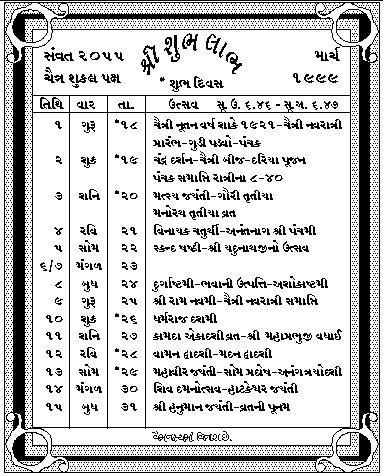 શ્રી શુભ લાભ
સંવત ૨૦૫૫ માર્ચ
ચૈત્ર શુકલ પક્ષ * શુભ દિવસ ૧૯૯૯
તિથિ વાર તા. ઉત્સવ સૂ. ઉ. ૬.૪૬ - સૂ.અ. ૬.૪૭
૧ ગુરૂ *૧૮ ચૈત્રી નૂતન વર્ષ શાકે ૧૯૨૧-ચૈત્રી નવરાત્રી
પ્રારંભ-ગુડી પડવો-પંચક
૨ શુક્ર *૧૯ ચંદ્ર દર્શન-ચૈત્રી બીજ-દરિયા પૂજન
પંચક સમાપ્તિ રાત્રીના ૮-૪૦
૩ શનિ *૨૦ મત્સ્ય જયંતી-ગૌરી તૃતીયા
મનોરથ તૃતીયા વ્રત
૪ રવિ ૨૧ વિનાયક ચતુર્થી-અનંતનાગ શ્રી પંચમી
૫ સોમ ૨૨ સ્કન્દ ષષ્ઠી-શ્રી યદુનાથજીનો ઉત્સવ
૬/૭ મંગળ ૨૩
૮ બુધ ૨૪ દુર્ગાષ્ટમી-ભવાની ઉત્પત્તિ-અશોકાષ્ટમી
૯ ગુરૂ ૨૫ શ્રી રામ નવમી-ચૈત્રી નવરાત્રી સમાપ્તિ
૧૦ શુક્ર *૨૬ ધર્મરાજ દશમી
૧૧ શનિ *૨૭ કામદા એકાદશી વ્રત-શ્રી મહાપ્રભુજી વધાઈ
૧૨ રવિ *૨૮ વામન દ્વાદશી-મદન દ્વાદશી
૧૩ સોમ *૨૯ મહાવીર જયંતી-સોમ પ્રદોષ-અનંગત્રયોદશી
૧૪ મંગળ ૩૦ શિવ દમનોત્સવ-હાટકેશ્વર જયંતી
૧૫ બુધ ૩૧ શ્રી હનુમાન જયંતી-વ્રતની પૂનમ